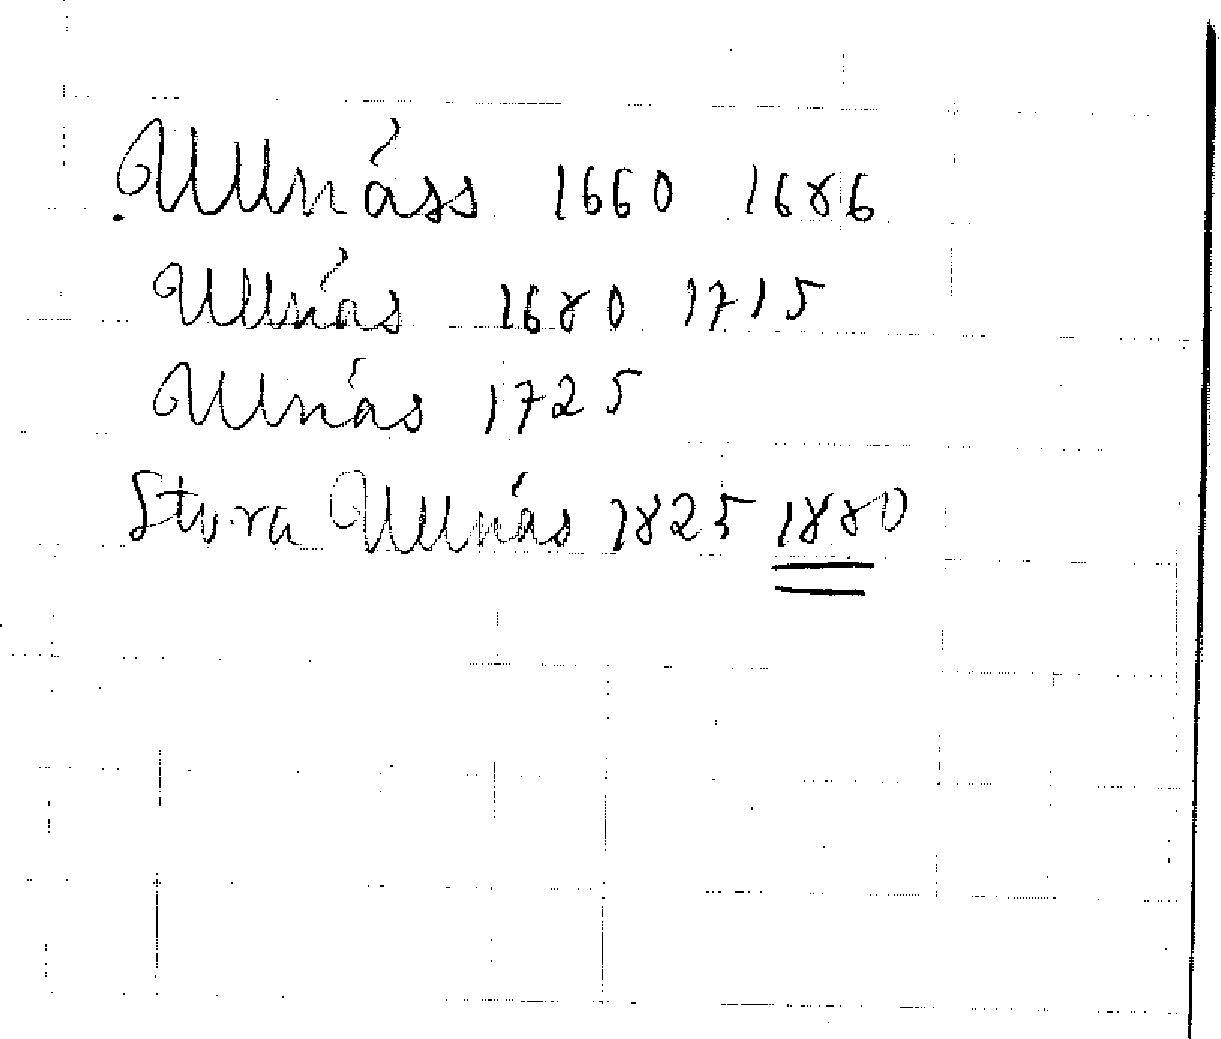 Ullnäss 1660 1686
Ullnäs 1680 1715
Ullnäs 1725
Stora Ullnäs 1825 1880